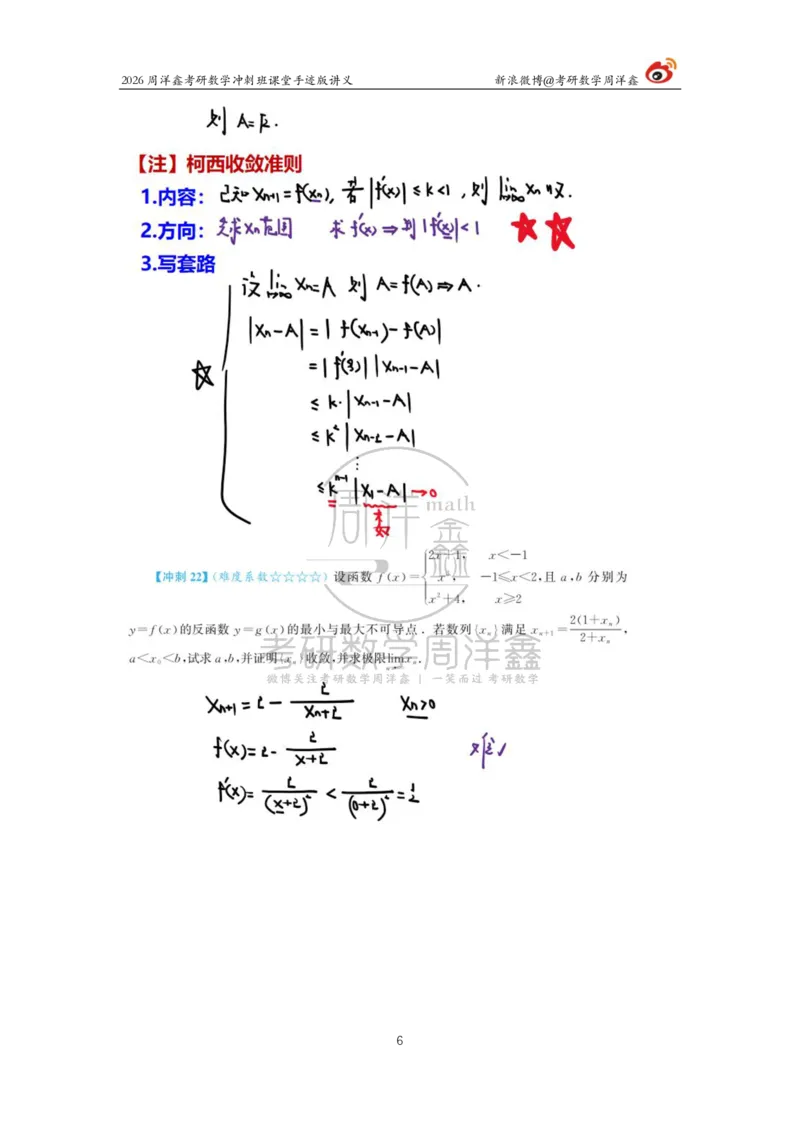 2026 周洋鑫考研数学冲刺班课堂手迹版讲义 新浪微博@考研数学周洋鑫
则 A=k.
【注】柯西收敛准则
1.内容: 已知 xn+1=f(xn), 若 |f'(x)|≤k<1, 则 lim n→∞ xn 收敛.
2.方向: 先求xn范围 求 f'(x) ⇒ 则 |f'(x)|<1
3.写套路
设 lim n→∞ xn=A 则 A=f(A) ⇒ A.
|xn-A|=|f(xn-1)-f(A)|
=|f'(ξ)||xn-1-A|
≤k·|xn-1-A|
≤k²|xn-2-A|
⋮
≤k^n-1|x1-A|→0
【冲刺 22】(难度系数☆☆☆☆) 设函数 f(x)={2x+1, x<-1
-1≤x<2, 且 a,b 分别为
x²+4, x≥2
y=f(x)的反函数 y=g(x)的最小与最大不可导点. 若数列{xn}满足 xn+1=2(1+xn)/2+xn,
a<x0<b,试求 a,b,并证明{xn}收敛,并求极限lim xn.
周洋鑫 math
考研数学周洋鑫
微博关注考研数学周洋鑫 | 一笑而过 考研数学
xn+1=2-2/xn+2 xn>0
f(x)=2-2/x+2 难✓
f'(x)=2/(x+2)²<2/(0+2)²=1/2
6